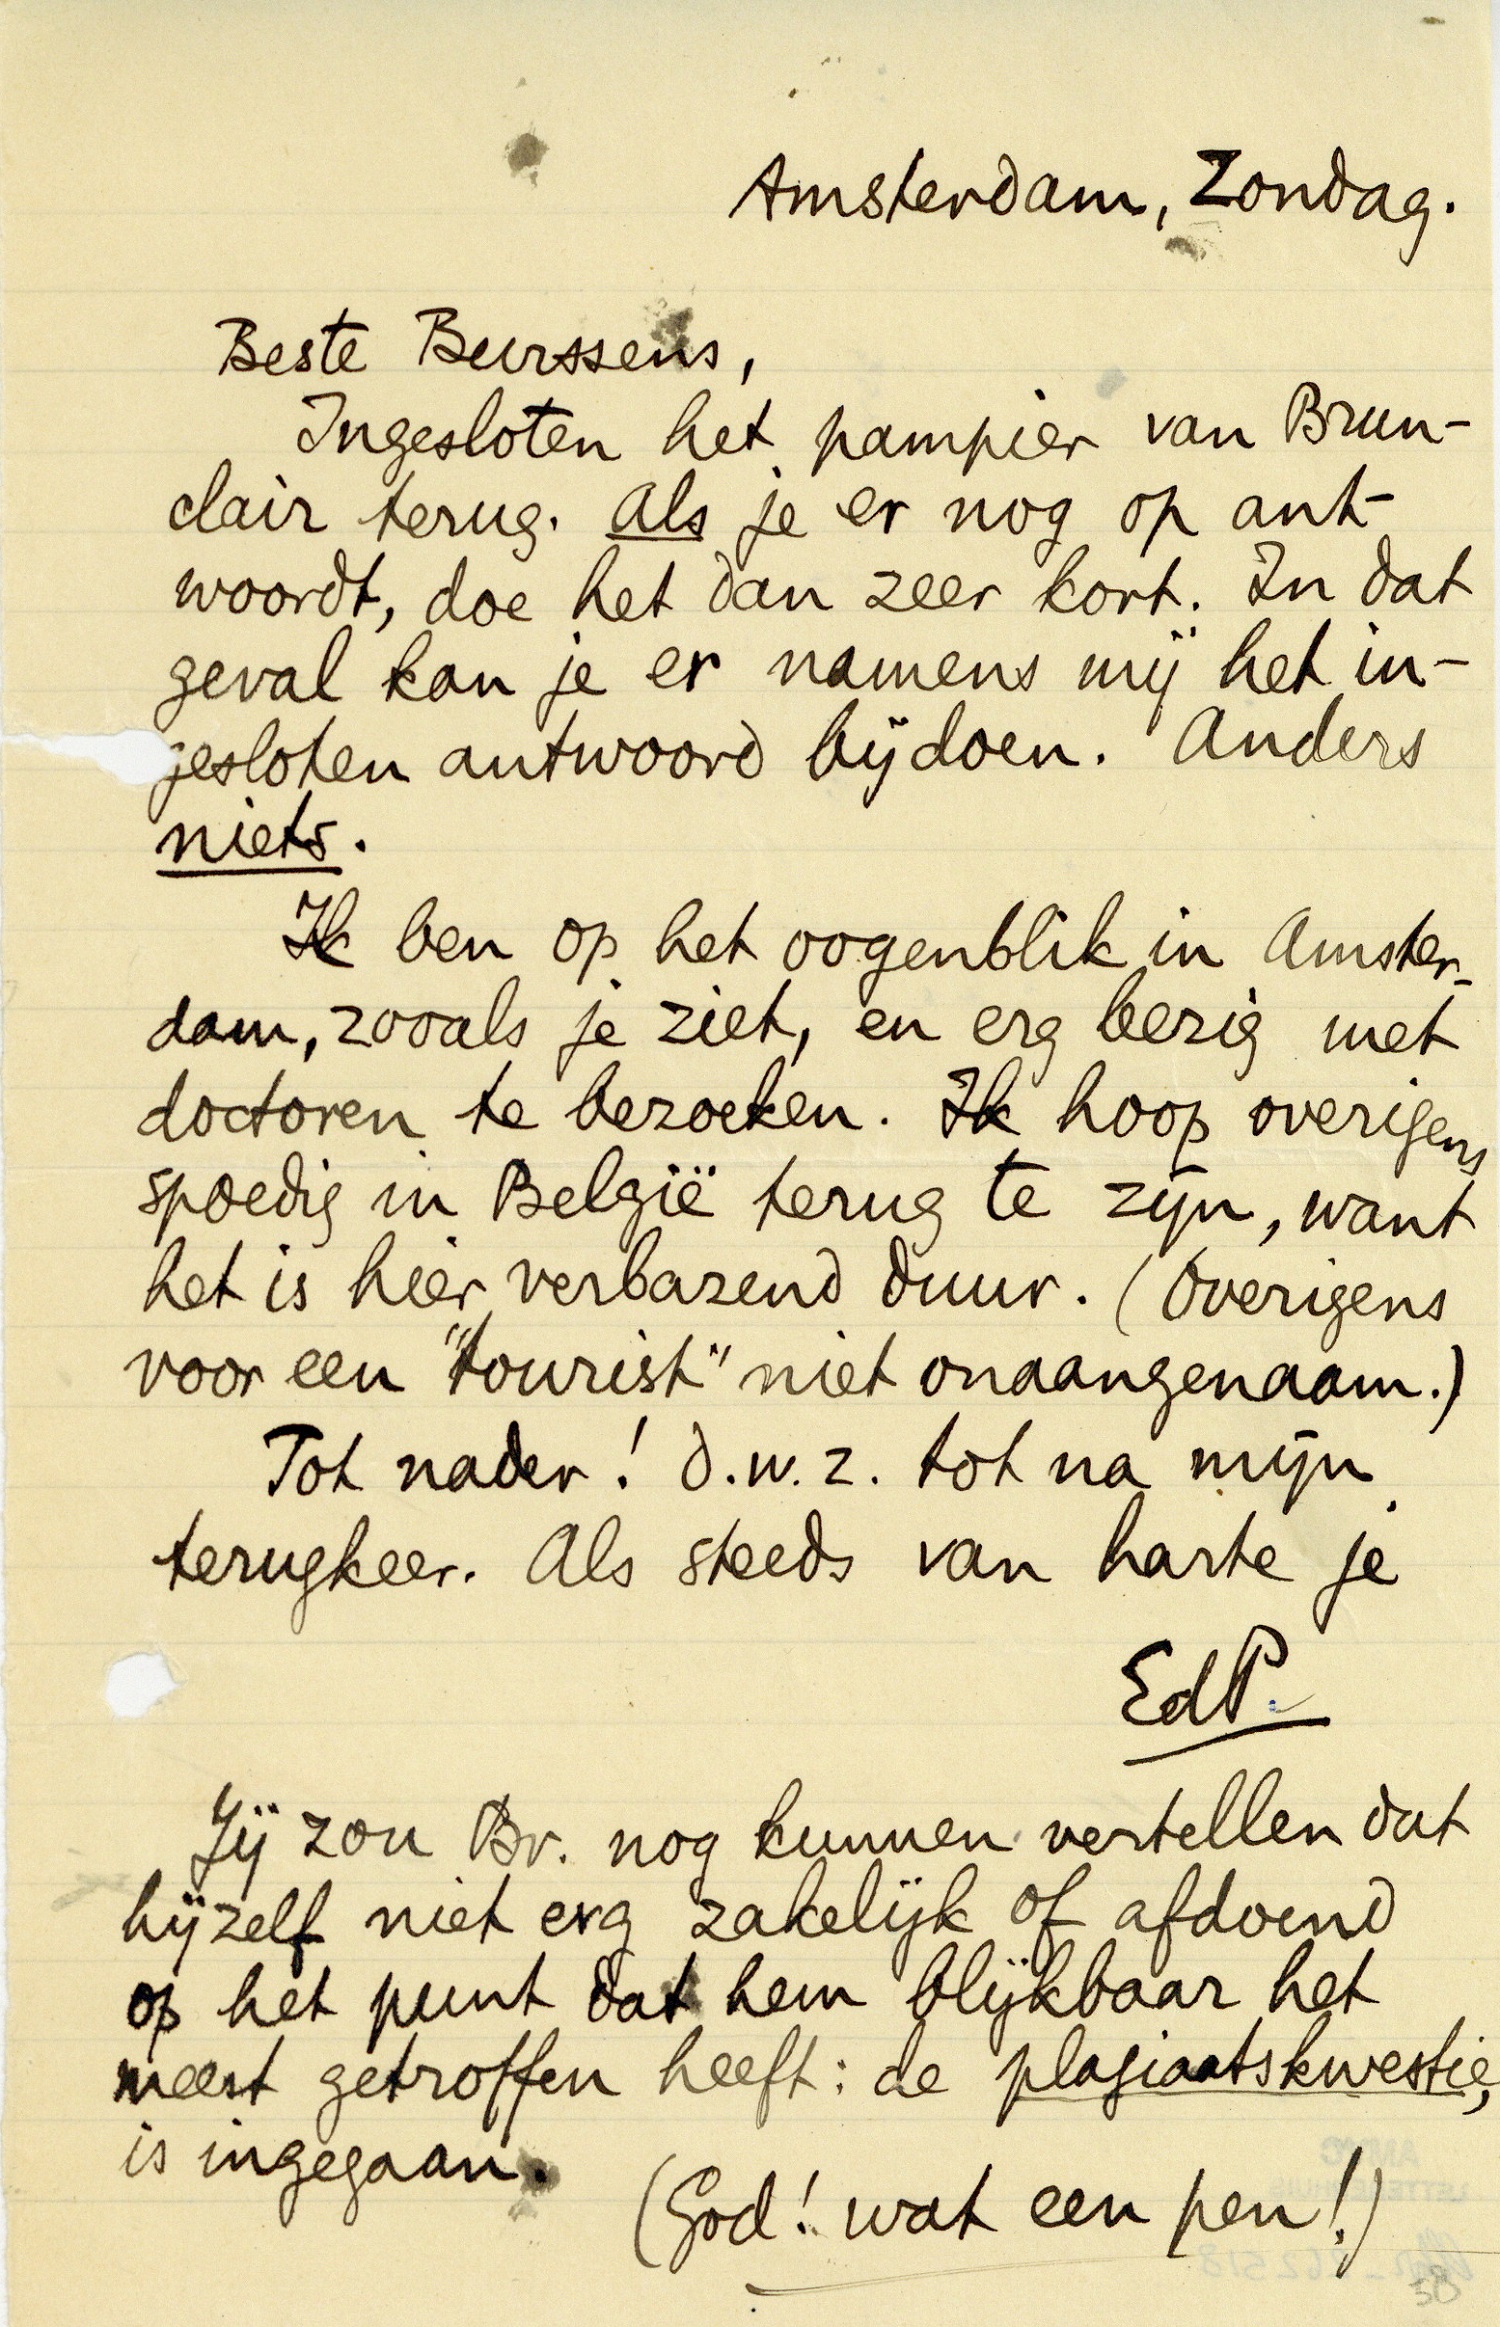 Amsterdam, Zondag.
Beste Burssens,
Ingesloten het pampier van Brun-
clair terug. Als je er nog op ant-
woordt, doe het dan zeer kort. In dat
geval kan je er namens mij het in-
gesloten antwoord bijdoen. Anders
niets.
Ik ben op het oogenblik in Amster-
dam, zooals je ziet, en erg bezig met
doctoren te bezoeken. Ik hoop overigens
spoedig in België terug te zijn, want
het is hier verbazend duur. (Overigens
voor een "tourist" niet onaangenaam.)
Tot nader! d.w.z. tot na mijn
terugkeer. Als steeds van harte je
EdP.
Jij zou Br. nog kunnen vertellen dat
hijzelf niet erg zakelijk of afdoend
op het punt dat hem blijkbaar het
meest getroffen heeft: de plagiaatskwestie,
is ingegaan.
(God! wat een pen!)
58